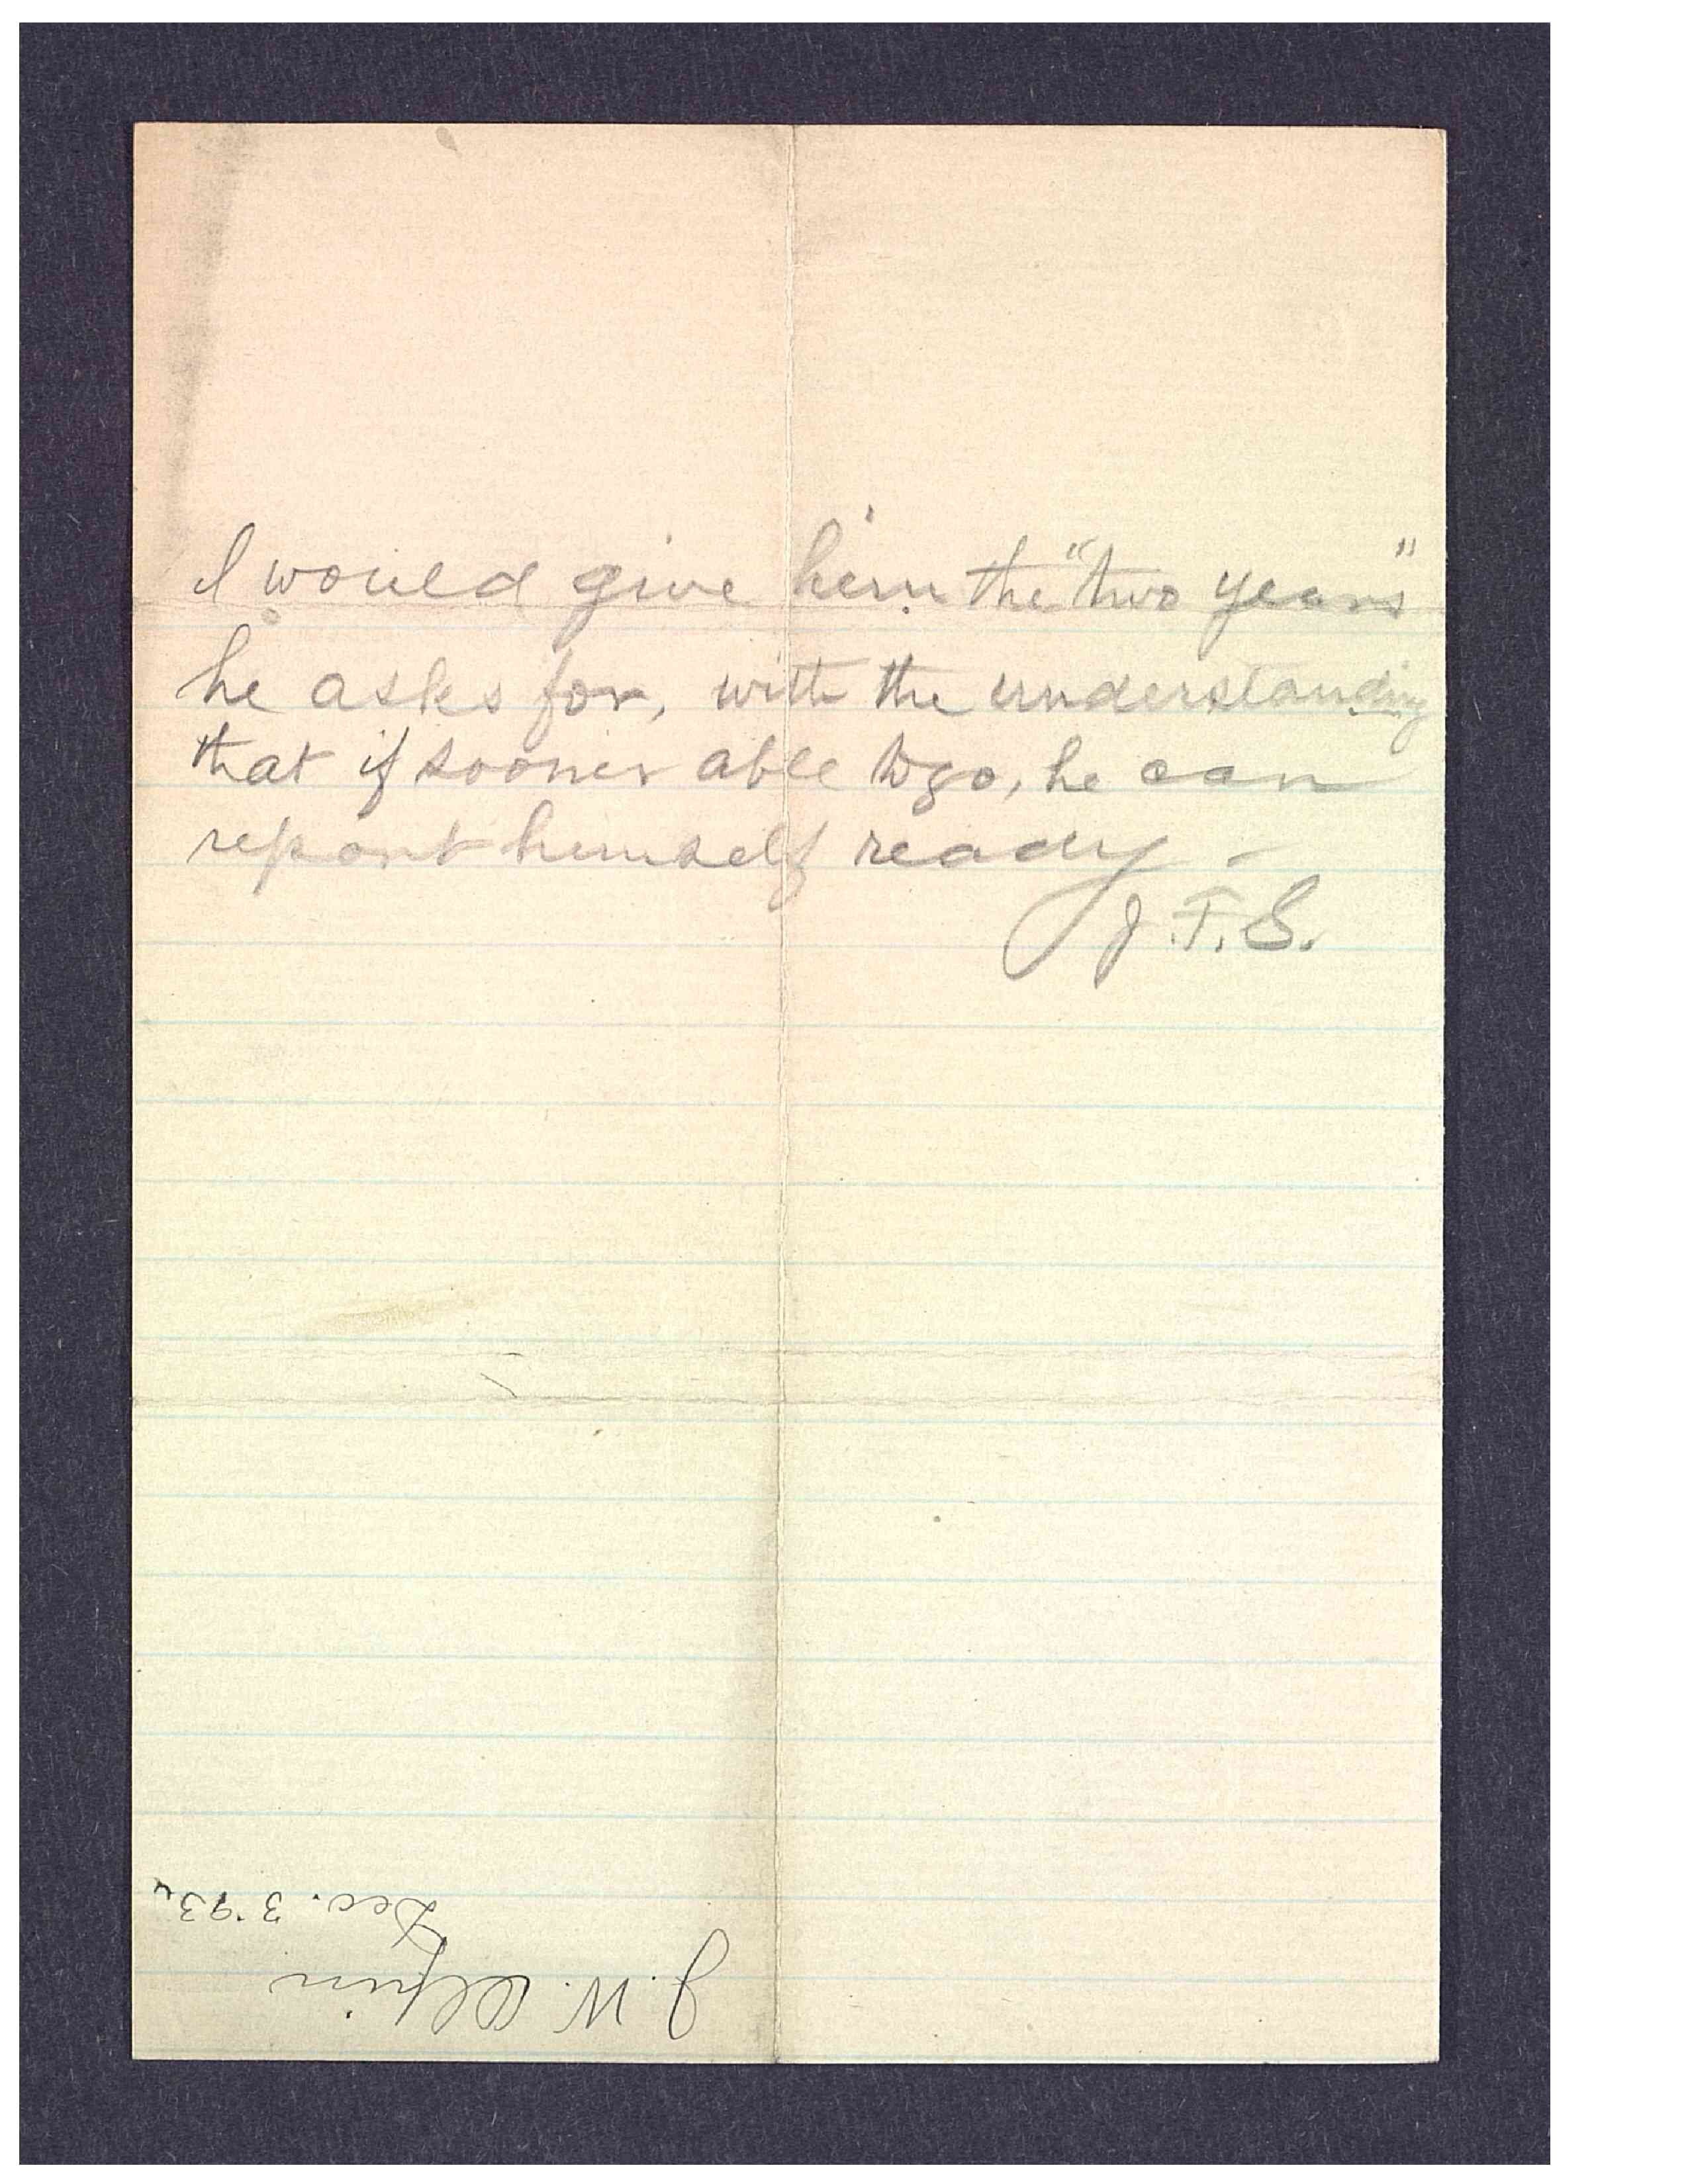 I would give him the "two years"
he asks for, with the understanding
that if sooner able to go, he can
report himself ready -
J.F.S.
J. W. Olpin
Dec. 3 '93.